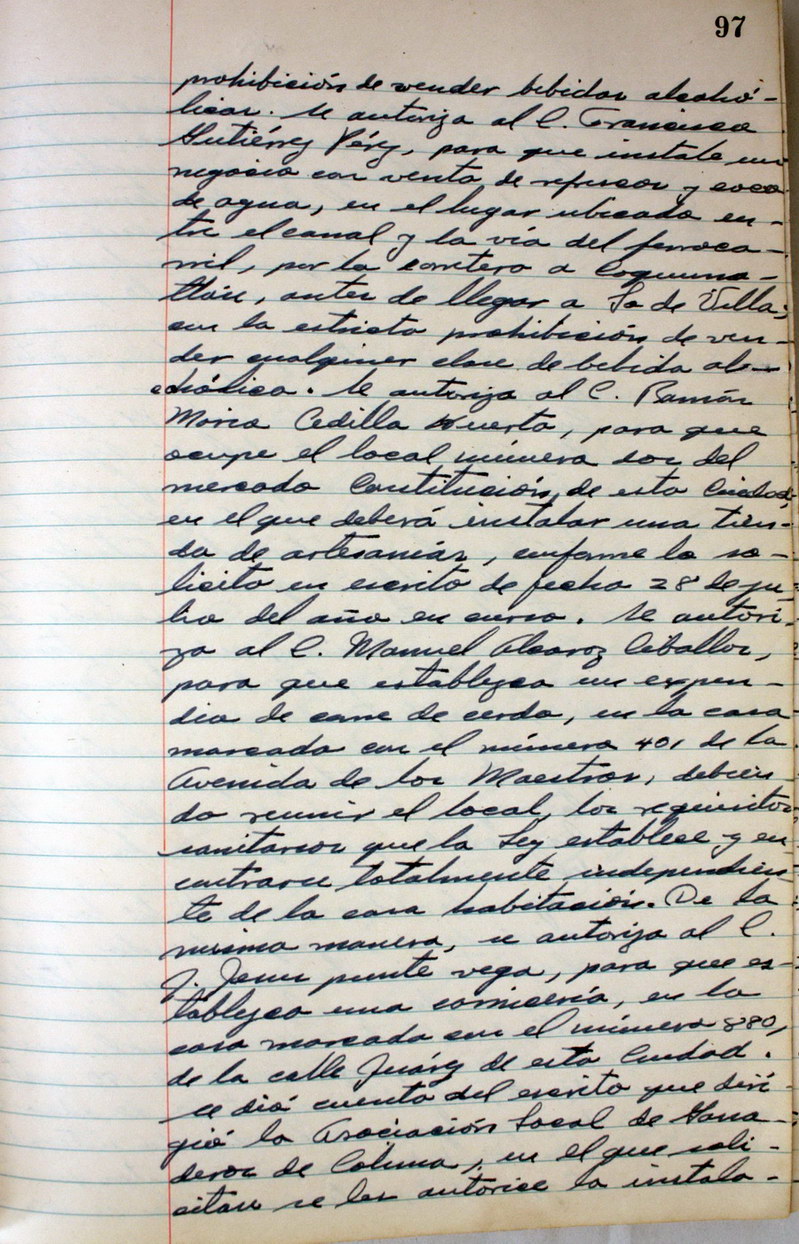 97
prohibición de vender bebidas alcohó-
licas. Se autoriza al C. Francisco
Gutiérrez Pérez, para que instale un
negocio con venta de refrescos y cocos
de agua, en el lugar ubicado en-
tre el canal y la vía del ferroca-
rril, por la carretera a Coquima-
tlán, antes de llegar a La de Villa,
con la estricta prohibición de ven-
der cualquier clase de bebida al-
cohólica. Se autoriza al C. Ramón
María Cedillo Huerta, para que
ocupe el local número dos del
mercado Constitución, de esta Ciudad,
en el que deberá instalar una tien-
da de artesanías, conforme lo so-
licitó en escrito de fecha 28 de ju-
lio del año en curso. Se autori-
za al C. Manuel Alcaraz Ceballos,
para que establezca un expen-
dio de carne de cerdo, en la casa
marcada con el número 401 de la
Avenida de los Maestros, debien-
do reunir el local, los requisitos
sanitarios que la Ley establece y en
contrarse totalmente independien
te de la casa habitación. De la
misma manera, se autoriza al C.
J. Jesus puente vega, para que es-
tablezca una carnicería, en la
casa marcada con el número 880,
de la calle Juárez de esta Ciudad.
se dió cuenta del escrito que diri
gió la Asociación Local de Gana-
deros de Colima, en el que soli-
citan se les autorice la instala-